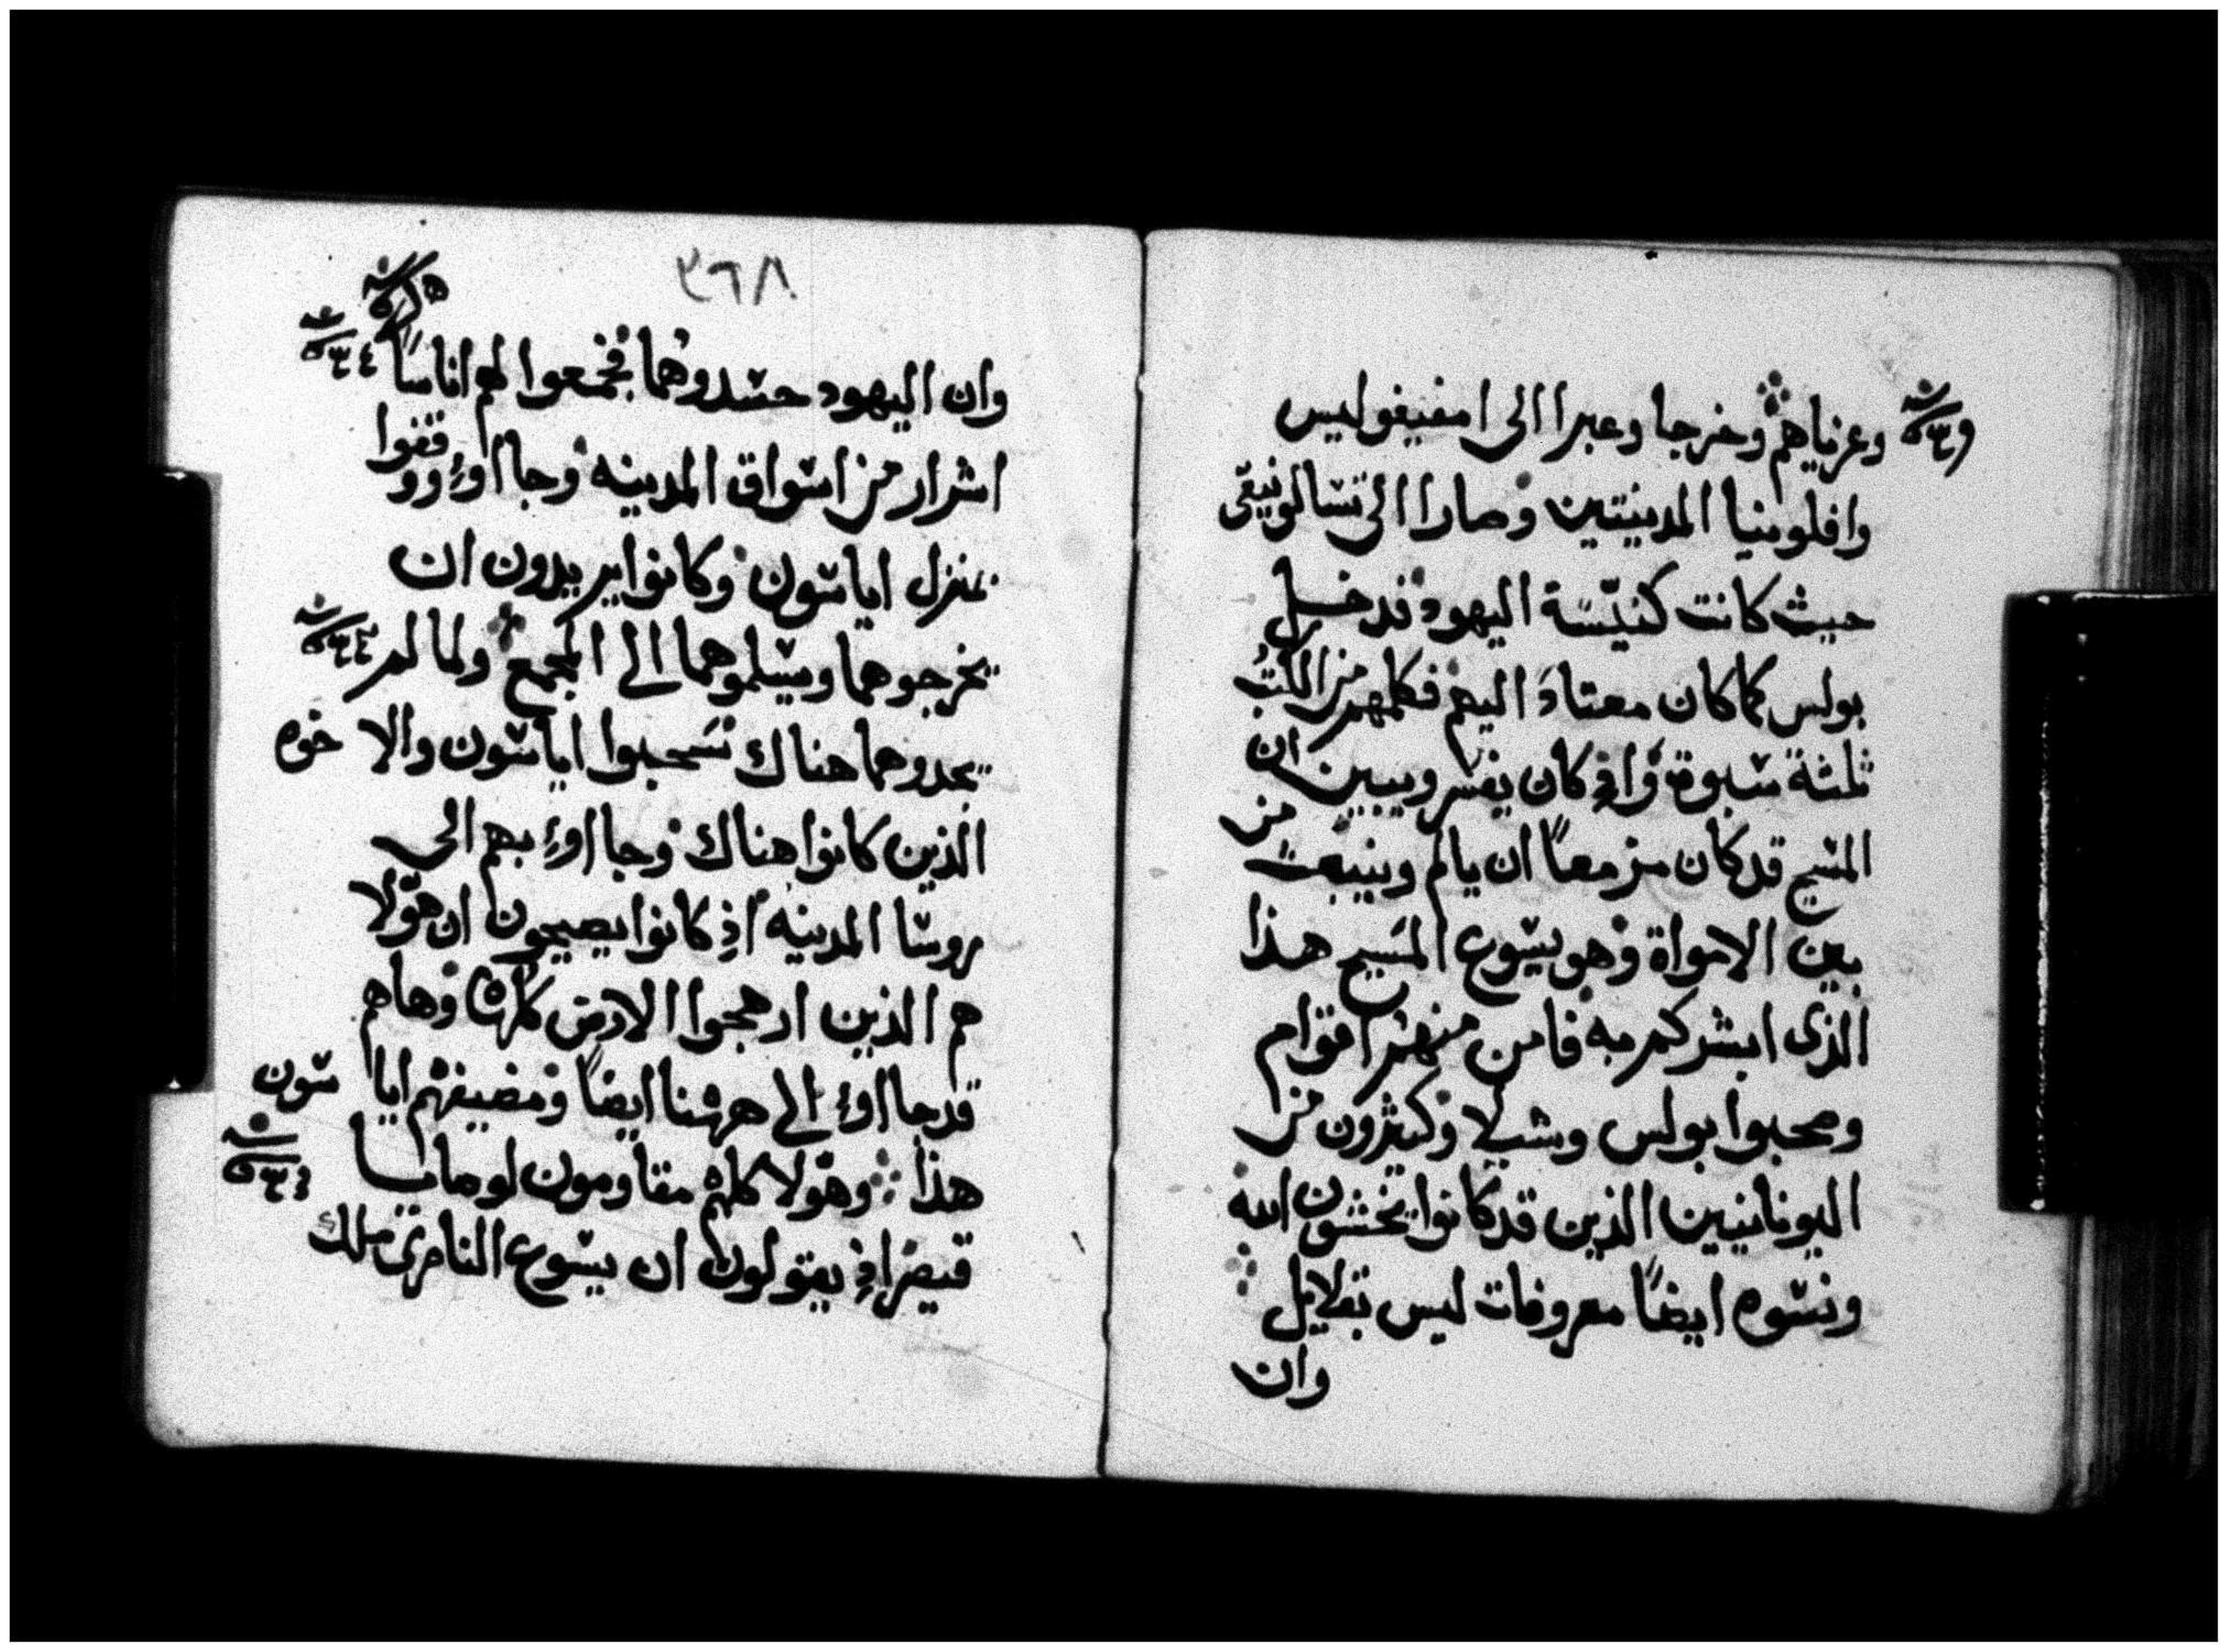 وعزياهم وخرجا وعبرا الى امفيغوليس
وافلونيا المدينتين وصارا الى تسالونيقى
حيث كانت كنيسة اليهود فدخل
بولس كما كان معتاد اليهم فكلمهم من الكتب
ثلثة سبوة واذ كان يفسر ويبين ان
المسيح قد كان مزمعاً ان يالم وينبعث من
بين الامواة وهو يسوع المسيح هذا
الذى ابشركم به فامن منهم اقوام
وصحبوا بولس وشيلا وكثيرون من
اليونانيين الذين قد كانوا يخشون الله
ونسوه ايضاً معروفات ليس بقلايل
وان
٣٦٨
وان اليهود حسدوهما فجمعوا لهم اناساً
اشرار من اسواق المدينه وجااوء ووقفوا
بمنزل اياسون وكانوا يريدون ان
يخرجوهما ويسلموهما الى المجمع ولما لم
يجدوهما هناك سحبوا اياسون والاخوه
الذين كانوا هناك وجااوء بهم الى
روسا المدينه اذ كانوا يصيحون ان هولا
هم الذين ارهجوا الارض كلها وهاهم
قد جااوء الى ههنا ايضاً ومضيفهم اياسون
هذا وهولا كلهم مقاومون لوصايا
قيصر اذ يقولون ان يسوع الناصرى ملك